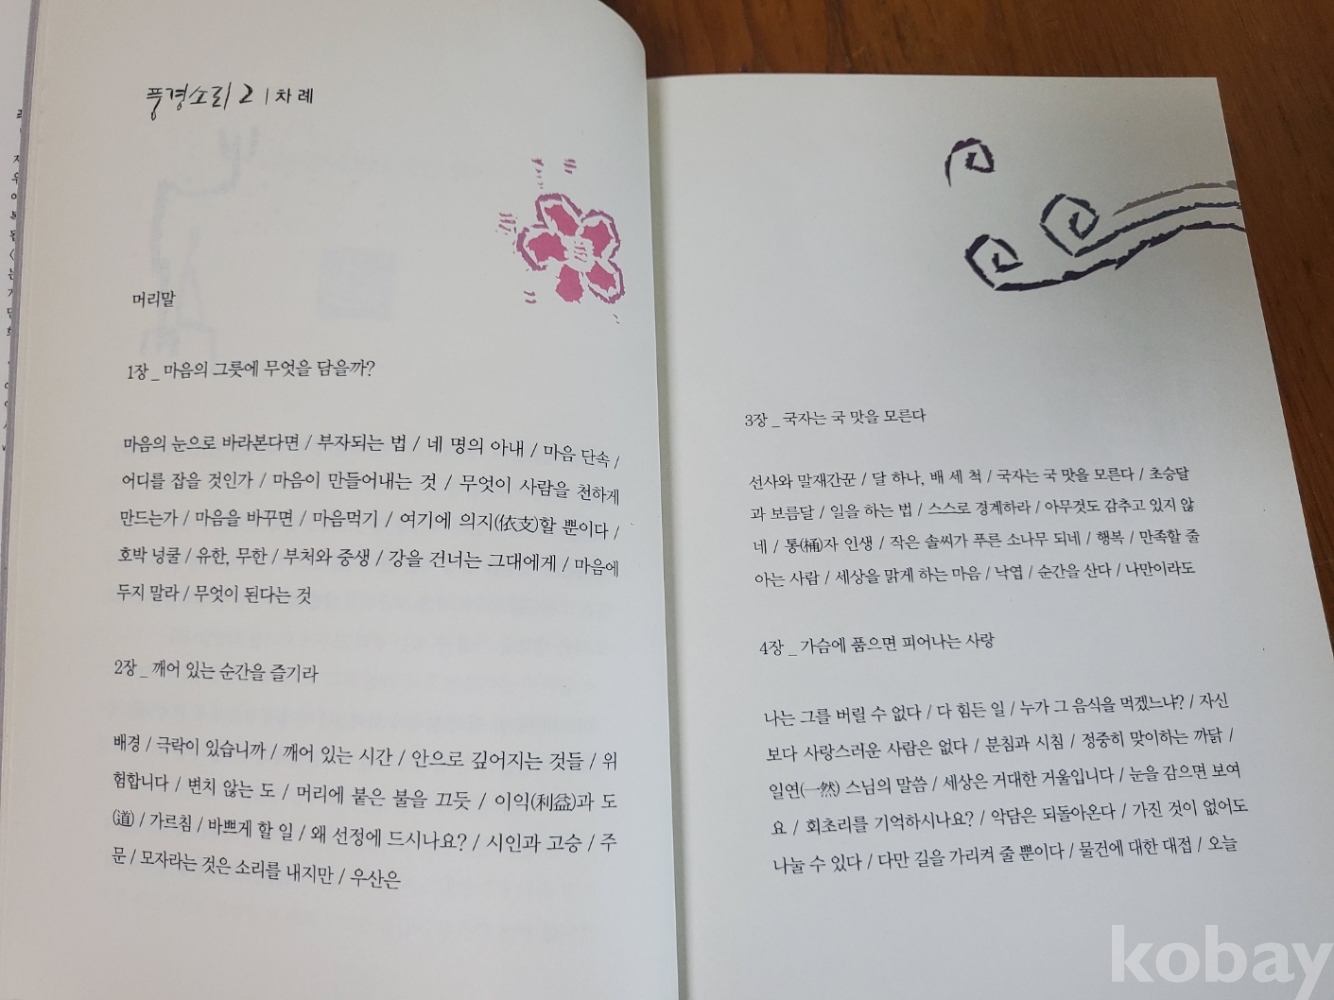 풍경소리 2 | 차례
머리말
1장 _ 마음의 그릇에 무엇을 담을까?
마음의 눈으로 바라본다면 / 부자되는 법 / 네 명의 아내 / 마음 단속 /
어디를 잡을 것인가 / 마음이 만들어내는 것 / 무엇이 사람을 천하게
만드는가 / 마음을 바꾸면 / 마음먹기 / 여기에 의지(依支)할 뿐이다 /
호박 넝쿨 / 유한, 무한 / 부처와 중생 / 강을 건너는 그대에게 / 마음에
두지 말라 / 무엇이 된다는 것
2장 _ 깨어 있는 순간을 즐기라
배경 / 극락이 있습니까 / 깨어 있는 시간 / 안으로 깊어지는 것들 / 위
험합니다 / 변치 않는 도 / 머리에 붙은 불을 끄듯 / 이익(利益)과 도
(道) / 가르침 / 바쁘게 할 일 / 왜 선정에 드시나요? / 시인과 고승 / 주
문 / 모자라는 것은 소리를 내지만 / 우산은
3장 _ 국자는 국 맛을 모른다
선사와 말재간꾼 / 달 하나, 배 세 척 / 국자는 국 맛을 모른다 / 초승달
과 보름달 / 일을 하는 법 / 스스로 경계하라 / 아무것도 감추고 있지 않
네 / 통(桶)자 인생 / 작은 솔씨가 푸른 소나무 되네 / 행복 / 만족할 줄
아는 사람 / 세상을 맑게 하는 마음 / 낙엽 / 순간을 산다 / 나만이라도
4장 _ 가슴에 품으면 피어나는 사랑
나는 그를 버릴 수 없다 / 다 힘든 일 / 누가 그 음식을 먹겠느냐? / 자신
보다 사랑스러운 사람은 없다 / 분침과 시침 / 정중히 맞이하는 까닭 /
일연(一然) 스님의 말씀 / 세상은 거대한 거울입니다 / 눈을 감으면 보여
요 / 회초리를 기억하시나요? / 악담은 되돌아온다 / 가진 것이 없어도
나눌 수 있다 / 다만 길을 가리켜 줄 뿐이다 / 물건에 대한 대접 / 오늘
kobay